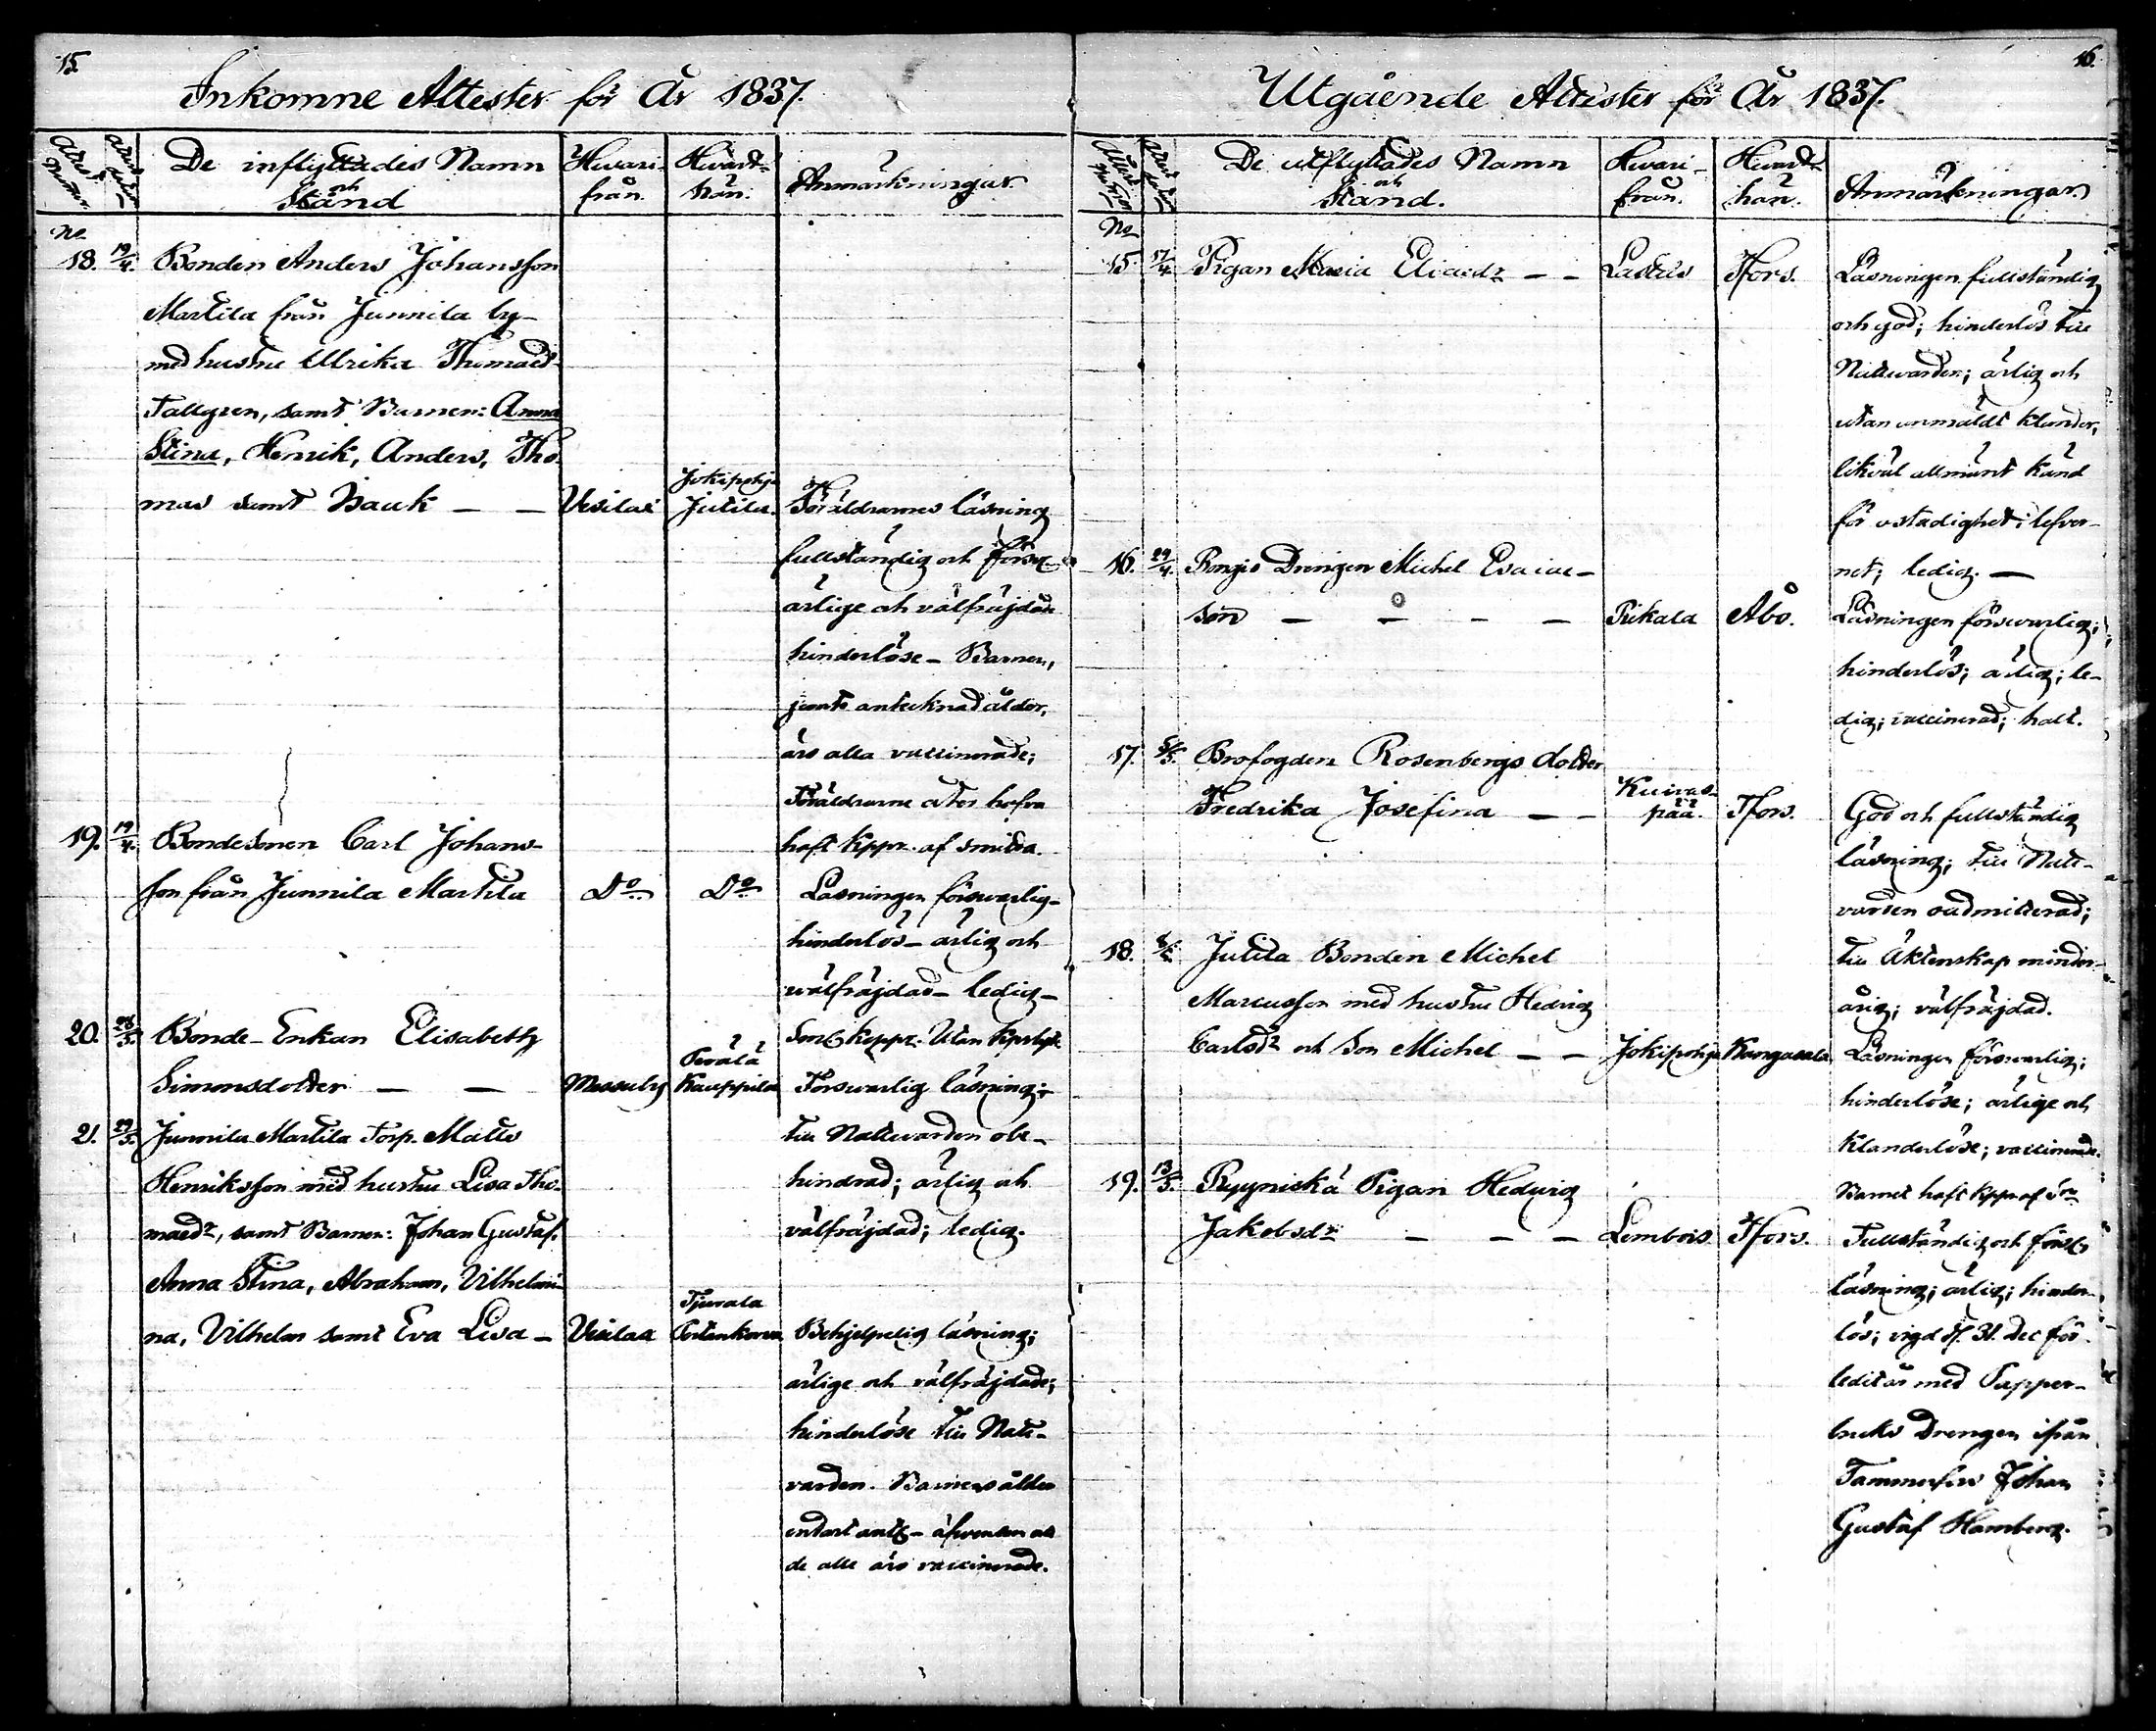 15
Inkomne Attester för År 1837.
De inflyttades Namn
och
Stånd
Hvari-
från.
Hvart-
hän.
Anmärkningar.
No
18. 19/4. Bonden Anders Johansson
Martila från Junnila by
med hustru Ulrika Thomaedr
Tallgren, samt Barnen: Anna
Stina, Henrik, Anders, Tho-
mas samt Isaak — — Vesilax Jokipohja Jutila. Föräldrarnes läsning
fullständig och försv.
ärlige och välfräjdade
hinderlöse - Barnen,
jemte antecknad ålder,
äro alla vaccinerade;
Föräldrarne åter hafva
haft kppr. af smitta.
19. 19/4. Bondesonen Carl Johans-
son från Junnila Martila Do Do Läsningen försvarlig-
hinderlös - ärlig och
välfräjdad - ledig -
20. 28/5. Bonde-Enkan Elisabeth
Simonsdotter — — Messuby Perälä Kauppila Försvarlig läsning;
till Nattvarden obe-
hindrad; ärlig och
välfräjdad; ledig.
21. 29/5. Junnila Martila Torp. Matts
Henriksson med hustru Lisa Tho-
maedr, samt Barnen: Johan Gustaf,
Anna Stina, Abraham, Vilhelmi-
na, Vilhelm samt Eva Lisa — Vesilax Behjelpelig läsning;
ärlige och välfräjdade;
hinderlöse till Natt-
varden. Barnens ålder
endast ant. - äfvensom att
de alle äro vaccinerade.
16.
Utgående Attester för År 1837.
De utflyttades Namn
och
Stånd.
Hvari-
från.
Hvart-
hän.
Anmärkningar.
No
15. 17/4. Pigan Maria Eliaedr — — Lastus Tfors. Läsningen fullständig
och god; hinderlös till
Nattvarden; ärlig och
utan anmäldt klander,
likväl allmänt känd
för ostadighet i lefver-
net; ledig. —
16. 29/4. Drengen Michel Esaiae-
son — — — — Åbo. Läsningen försvarlig;
hinderlös; ärlig; le-
dig; vaccinerad; halt.
17. 5/5. Brofogden Rosenbergs dotter
Fredrika Josefina — — Kuivas-
pää. Tfors. God och fullständig
läsning; till Natt-
varden oadmitterad;
till Äktenskap minder-
årig; välfräjdad.
18. Jutila Bonden Michel
Marcusson med hustru Hedvig
Carlsdr och Son Michel — — Jokipohja Kangasala Läsningen försvarlig;
hinderlöse; ärlige och
klanderlöse; vaccinerade.
Barnet haft kppr af
19. 13/5. Pigan Hedvig
Jakobsdr — — — Lembois Tfors. Fullständig och försv.
läsning; ärlig; hinder-
lös; vigd d. 31. Dec för-
ledit år med Papper-
bruks Drengen ifrån
Tammerfors Johan
Gustaf Hamberg.